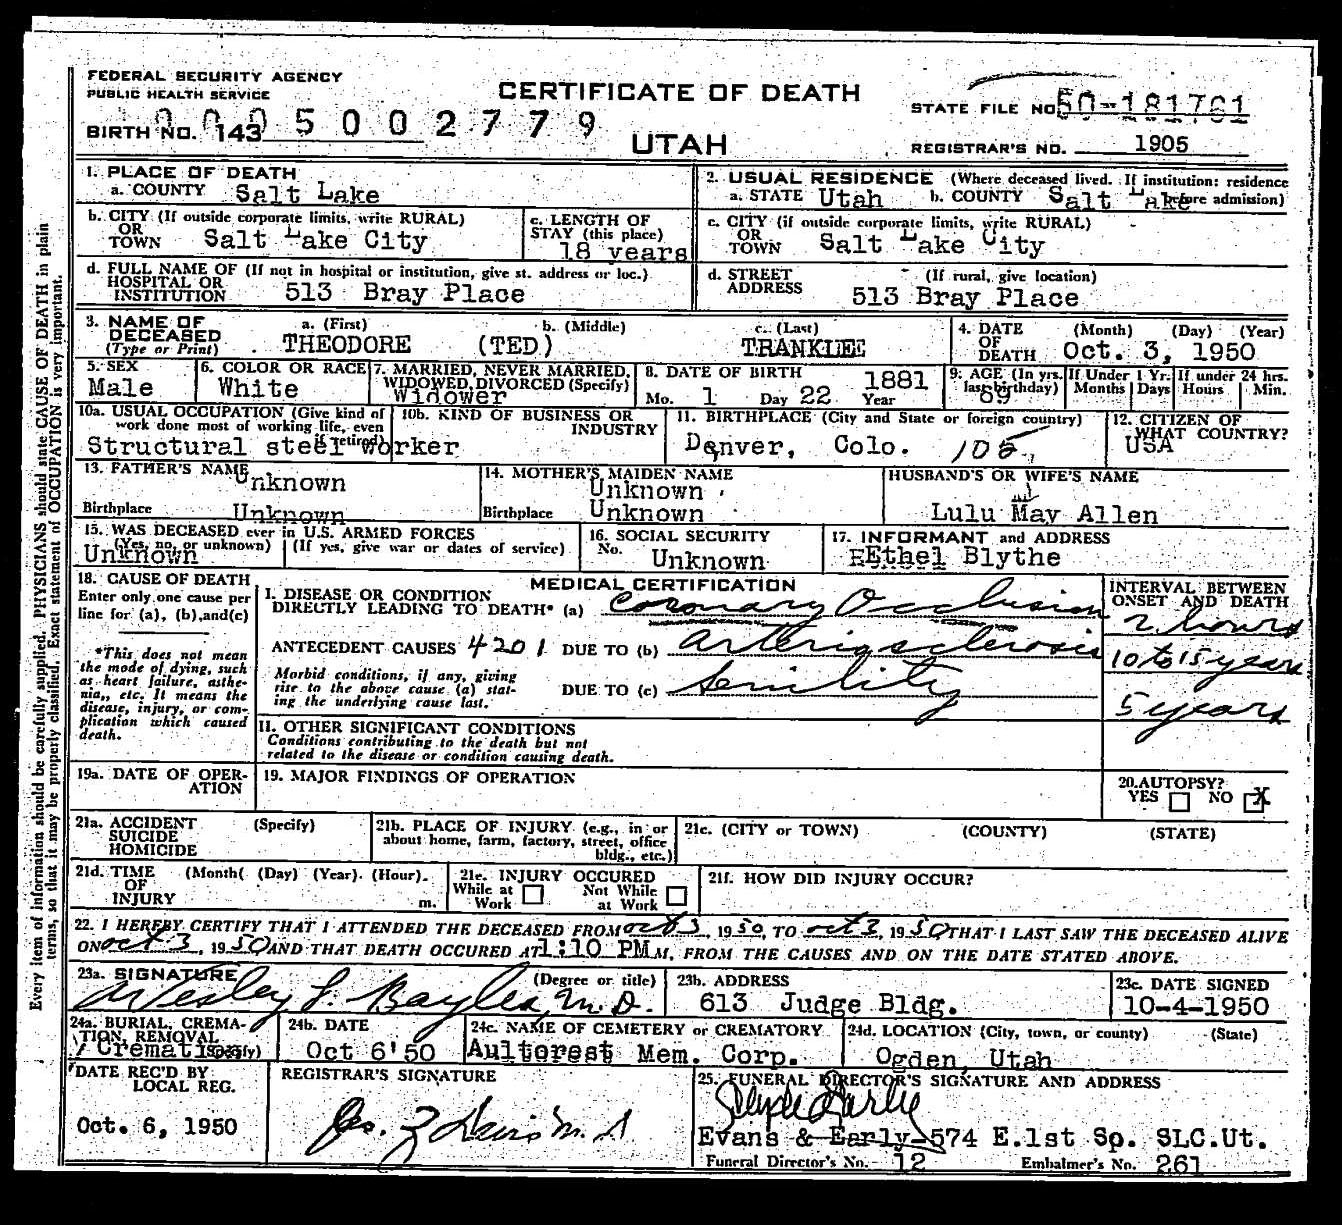 FEDERAL SECURITY AGENCY
PUBLIC HEALTH SERVICE
CERTIFICATE OF DEATH
UTAH
STATE FILE NO. 50-181761
BIRTH NO. 143 0005002779
REGISTRAR'S NO. 1905
1. PLACE OF DEATH
a. COUNTY Salt Lake
2. USUAL RESIDENCE (Where deceased lived. If institution: residence before admission)
a. STATE Utah b. COUNTY Salt Lake
b. CITY (If outside corporate limits, write RURAL)
OR
TOWN Salt Lake City
c. LENGTH OF
STAY (this place)
18 years
c. CITY (if outside corporate limits, write RURAL)
OR
TOWN Salt Lake City
d. FULL NAME OF (If not in hospital or institution, give st. address or loc.)
HOSPITAL OR
INSTITUTION 513 Bray Place
d. STREET (If rural, give location)
ADDRESS 513 Bray Place
3. NAME OF
DECEASED
(Type or Print)
a. (First) b. (Middle) c. (Last)
THEODORE (TED) TRANKLEE
4. DATE (Month) (Day) (Year)
OF
DEATH Oct. 3, 1950
5. SEX
Male
6. COLOR OR RACE
White
7. MARRIED, NEVER MARRIED,
WIDOWED, DIVORCED (Specify)
Widower
8. DATE OF BIRTH
Mo. 1 Day 22 Year 1881
9. AGE (In yrs. last birthday) 69
If Under 1 Yr. Months Days
If under 24 hrs. Hours Min.
10a. USUAL OCCUPATION (Give kind of
work done most of working life, even
if retired)
Structural steel worker
10b. KIND OF BUSINESS OR
INDUSTRY
11. BIRTHPLACE (City and State or foreign country)
Denver, Colo. 105
12. CITIZEN OF
WHAT COUNTRY?
USA
13. FATHER'S NAME
Unknown
Birthplace Unknown
14. MOTHER'S MAIDEN NAME
Unknown
Birthplace Unknown
HUSBAND'S OR WIFE'S NAME
Lulu May Allen
15. WAS DECEASED ever in U.S. ARMED FORCES
(Yes, no, or unknown) (If yes, give war or dates of service)
Unknown
16. SOCIAL SECURITY
No. Unknown
17. INFORMANT and ADDRESS
Ethel Blythe
18. CAUSE OF DEATH
Enter only one cause per
line for (a), (b), and (c)
*This does not mean
the mode of dying, such
as heart failure, asthe-
nia, etc. It means the
disease, injury, or com-
plication which caused
death.
MEDICAL CERTIFICATION
I. DISEASE OR CONDITION
DIRECTLY LEADING TO DEATH* (a) Coronary Occlusion
ANTECEDENT CAUSES 4201 DUE TO (b) Arteriosclerosis
Morbid conditions, if any, giving
rise to the above cause (a) stat-
ing the underlying cause last.
DUE TO (c) Senility
INTERVAL BETWEEN
ONSET AND DEATH
2 hours
10 to 15 years
5 years
II. OTHER SIGNIFICANT CONDITIONS
Conditions contributing to the death but not
related to the disease or condition causing death.
19a. DATE OF OPER-
ATION
19. MAJOR FINDINGS OF OPERATION
20. AUTOPSY?
YES NO X
21a. ACCIDENT (Specify)
SUICIDE
HOMICIDE
21b. PLACE OF INJURY (e.g., in or
about home, farm, factory, street, office
bldg., etc.)
21c. (CITY or TOWN) (COUNTY) (STATE)
21d. TIME (Month( (Day) (Year). (Hour).
OF
INJURY m.
21e. INJURY OCCURED
While at Work Not While at Work
21f. HOW DID INJURY OCCUR?
22. I HEREBY CERTIFY THAT I ATTENDED THE DECEASED FROM Oct 3, 1950, TO Oct 3, 1950 THAT I LAST SAW THE DECEASED ALIVE
ON Oct 3, 1950 AND THAT DEATH OCCURED AT 1:10 PM M, FROM THE CAUSES AND ON THE DATE STATED ABOVE.
23a. SIGNATURE (Degree or title)
Wesley L. Bayles, M.D.
23b. ADDRESS
613 Judge Bldg.
23c. DATE SIGNED
10-4-1950
24a. BURIAL, CREMA-
TION, REMOVAL
(Specify)
Cremation
24b. DATE
Oct 6'50
24c. NAME OF CEMETERY or CREMATORY
Aultorest Mem. Corp.
24d. LOCATION (City, town, or county) (State)
Ogden, Utah
DATE REC'D BY
LOCAL REG.
Oct. 6, 1950
REGISTRAR'S SIGNATURE
25. FUNERAL DIRECTOR'S SIGNATURE AND ADDRESS
Clyde Early
Evans & Early-574 E.1st Sp. SLC.Ut.
Funeral Director's No. 12 Embalmer's No. 261
Every item of information should be carefully supplied. PHYSICIANS should state CAUSE OF DEATH in plain
terms, so that it may be properly classified. Exact statement of OCCUPATION is very important.